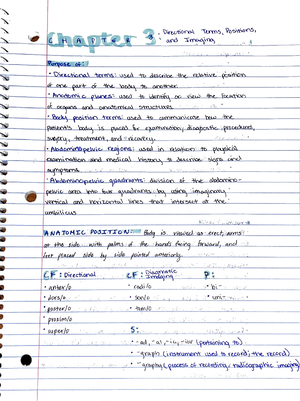 Chapter 3: Directional Terms, Positions,
and Imaging
CHAPTER
Purpose of:
• Directional terms: used to describe the relative position
of one part of the body to another
• Anatomic planes: used to identify or view the location
of organs and anatomical structures
• Body position terms: used to communicate how the
patient's body is placed for examination, diagnostic procedures,
surgery, treatment, and recovery
• Abdominopelvic regions: used in relation to physical
examination and medical history, to describe signs and
symptoms
• Abdominopelvic quadrants: division of the abdomino-
pelvic area into four quadrants by using imaginary
vertical and horizontal lines that intersect at the
umbilicus
ANATOMIC POSITION: Body is viewed as erect, arms
at the side with palms of the hands facing forward, and
feet placed side by side pointed anteriorly.
CF: Directional
• anter/o
• dors/o
• poster/o
• proxim/o
• super/o
CF: Diagnostic Imaging
• radi/o
• son/o
• tom/o
P:
• bi-
• uni-
S:
• -ad, -al, -ic, -ior (pertaining to)
• -graph (instrument used to record; the record)
• -graphy (process of recording, radiographic imaging)